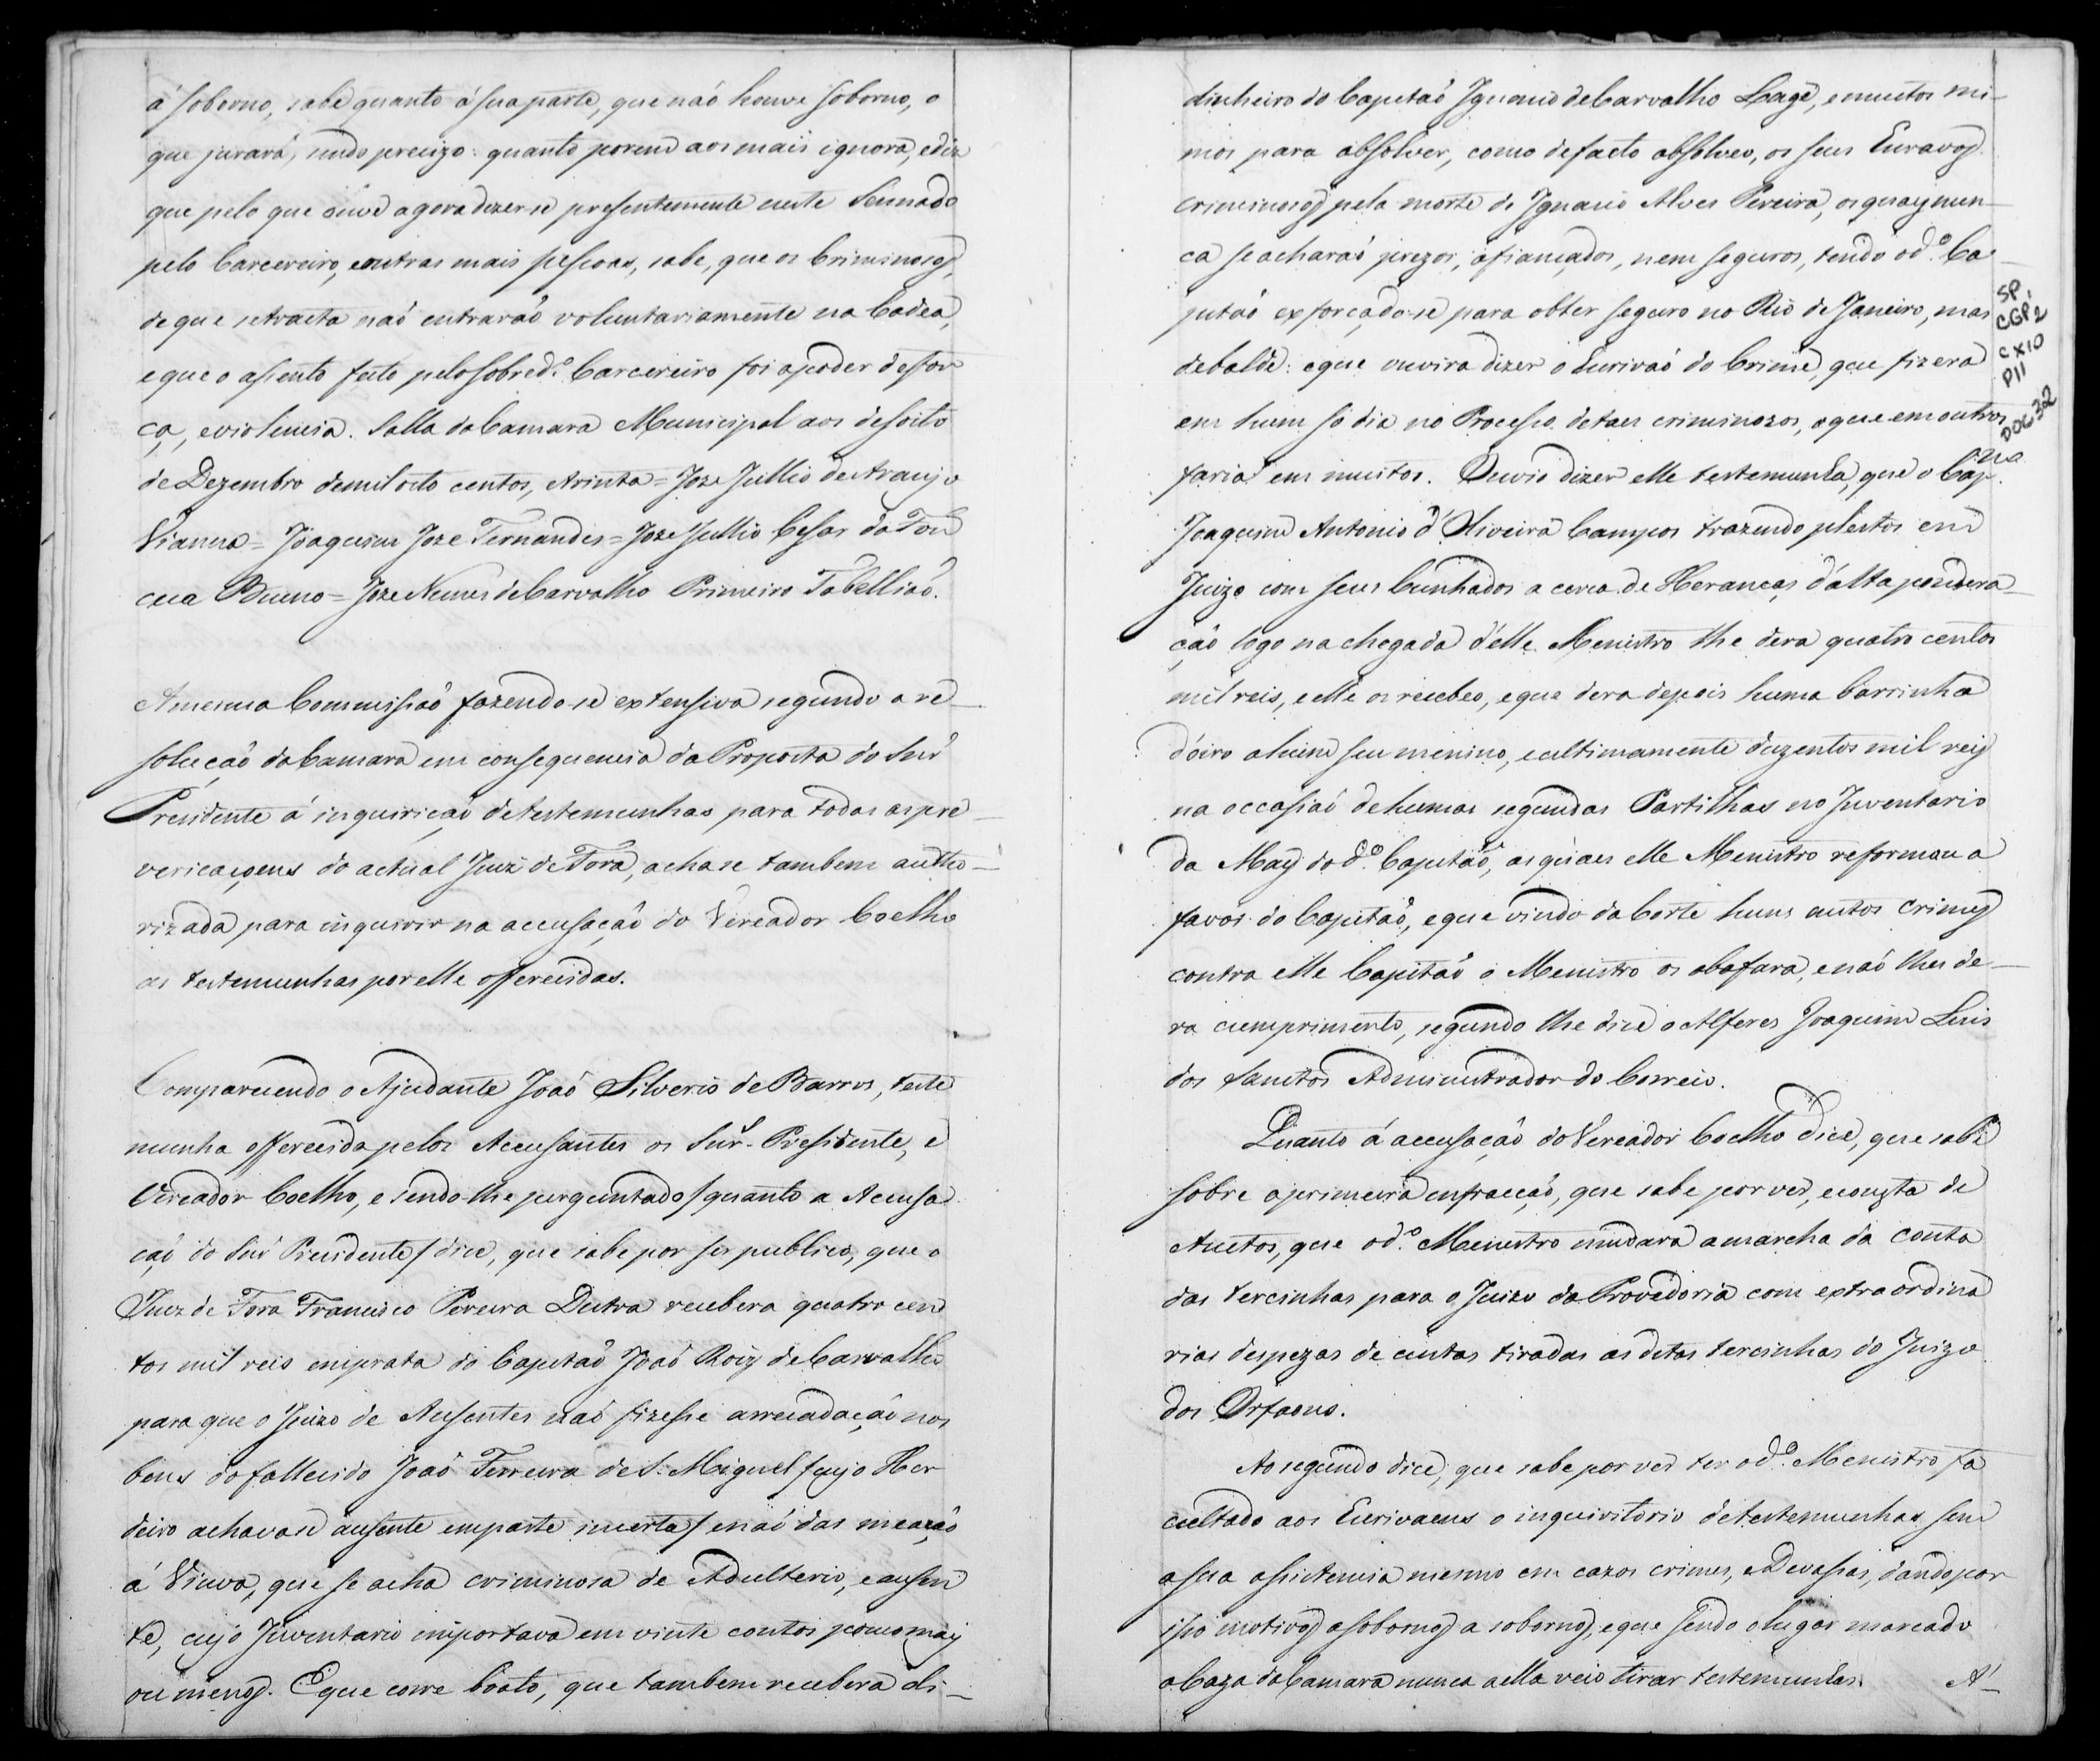 á soborno, sabe quanto á sua parte, que naõ houve soborno, o
que jurará, sendo precizo: quanto porem aos mais ignora, e diz
que pelo que ouve agora dizer-se presentemente neste Sennado
pelo Carcereiro, e outras mais pessoas, sabe, que os Criminosos,
de que se tracta naõ entraraõ voluntariamente na Cadea,
e que o assento feito pelo sobred.º Carcereiro foi a poder de for
ça, e violencia. Salla da Camara Municipal aos desoito
de Dezembro de mil oito centos, e trinta = Joze Jullio de Araujo
Vianna = Joaquim Joze Fernandes = Joze Jullio Cesar da Fon
ceca Bueno = Joze Nunes de Carvalho Primeiro Tabelliaõ.
A mesma Commissaõ fazendo-se extensiva segundo a re-
soluçaõ da Camara em consequencia da Proposta do Snr̃
Presidente á inquiriçaõ de testemunhas para todas as pre-
vericaçoens do actual Juiz de Fora, acha se tambem autho-
rizada para inquirir na accusaçaõ do Vereador Coelho
as testemunhas por elle offerecidas.
Comparecendo o Ajudante Joaõ Silverio de Barros, teste
munha offerecida pelos Accusantes os Snr̃. Presidente, e
Vereador Coelho, e sendo-lhe perguntado / quanto a Accusa
çaõ do Snr̃ Presidente / dice, que sabe por ser publico, que o
Juiz de Fora Francisco Pereira Dutra recebera quatro cen
tos mil reis em prata do Capitaõ Joaõ Roiz de Carvalho
para que o Juizo de Ausentes naõ fizesse arrecadaçaõ nos
bens do fallecido Joaõ Ferreira de S. Miguel / cujo Her
deiro achava se ausente em parte incerta / e naõ das meaçaõ
á Viuva, que se acha criminosa de Adulterio, e ausen
te, cujo Inventario importava em vinte contos pouco mais
ou menos. E que corre boato, que tambem recebera di-
dinheiro do Capitaõ Ignacio de Carvalho Lage, e muitos mi-
mos para absolver, como de facto absolveo, os seus Escravos
criminosos pela morte de Ignacio Alves Pereira, os quaes nun-
ca se acharaõ prezos, afiançados, nem seguros, tendo o d.º Ca-
pitaõ exforçado-se para obter seguro no Rio de Janeiro, mas
debalde: e que ouvira dizer o Escrivaõ do Crime, que fizera
em hum só dia no Processo de taes criminozos, o que em outros
faria em muitos. Ouvio dizer elle testemunha, que o Cap.ᵃᵐ
Joaquim Antonio d'Oliveira Campos trazendo pleitos em
Juizo com seus Cunhados a cerca de Heranças d'alta pondera-
çaõ logo na chegada d'elle Menistro lhe dera quatro centos
mil reis, e elle os recebeo, e que dera depois huma barrinha
d'oiro a hum seu menino, e ultimamente duzentos mil reis
na occasiaõ de humas segundas Partilhas no Inventario
da May do d.º Capitaõ, as quaes elle Menistro reformou a
favor do Capitaõ, e que vindo da Corte huns autos crimes
contra elle Capitaõ o Menistro os abafara, e naõ lhes de-
ra cumprimento, segundo lhe dice o Alferes Joaquim Luis
dos Sanctos Administrador do Correio.
Quanto á accusaçaõ do Vereador Coelho dice, que sabe
sobre a primeira infracçaõ, que sabe por ver, e consta de
Auctos, que o d.º Menistro mudara a marcha da conta
das tercinhas para o Juizo da Provedoria com extraordina
rias despezas de custas tiradas as ditas tercinhas do Juizo
dos Orfaons.
Ao segundo dice, que sabe por ver ter o d.º Menistro fa
cultado aos Escrivaens o inquiritorio de testemunhas sem
a sua assistencia mesmo em cazos crimes, e Devassas, dando por
isso motivos a sobornos, e que sendo o lugar marcado
a Caza da Camara nunca a ella veio tirar testemunhas. A'-
SP,
CGP2
CX10
P11
DOC32